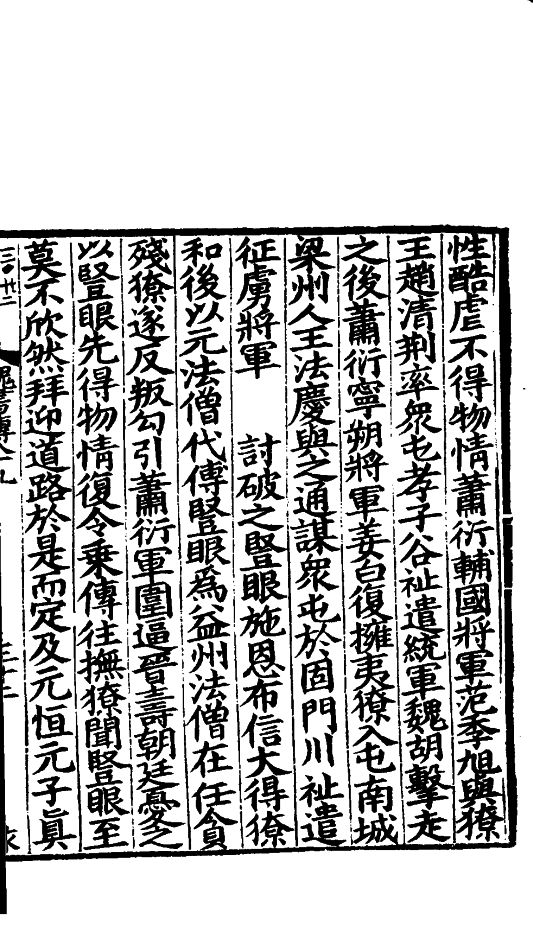 性酷虐不得物情蕭衍輔國將軍范季旭與獠
王趙清荆率衆屯孝子谷祉遣統軍魏胡擊走
之後蕭衍寧朔將軍姜白復擁夷獠入屯南城
梁州人王法慶與之通謀衆屯於固門川祉遣
征虜將軍　　討破之豎眼施恩布信大得獠
和後以元法僧代傅豎眼爲益州法僧在任貪
殘獠遂反叛勾引蕭衍軍圍逼晉壽朝廷憂之
以豎眼先得物情復令乗傳往撫獠聞豎眼至
莫不欣然拜迎道路於是而定及元恒元子眞